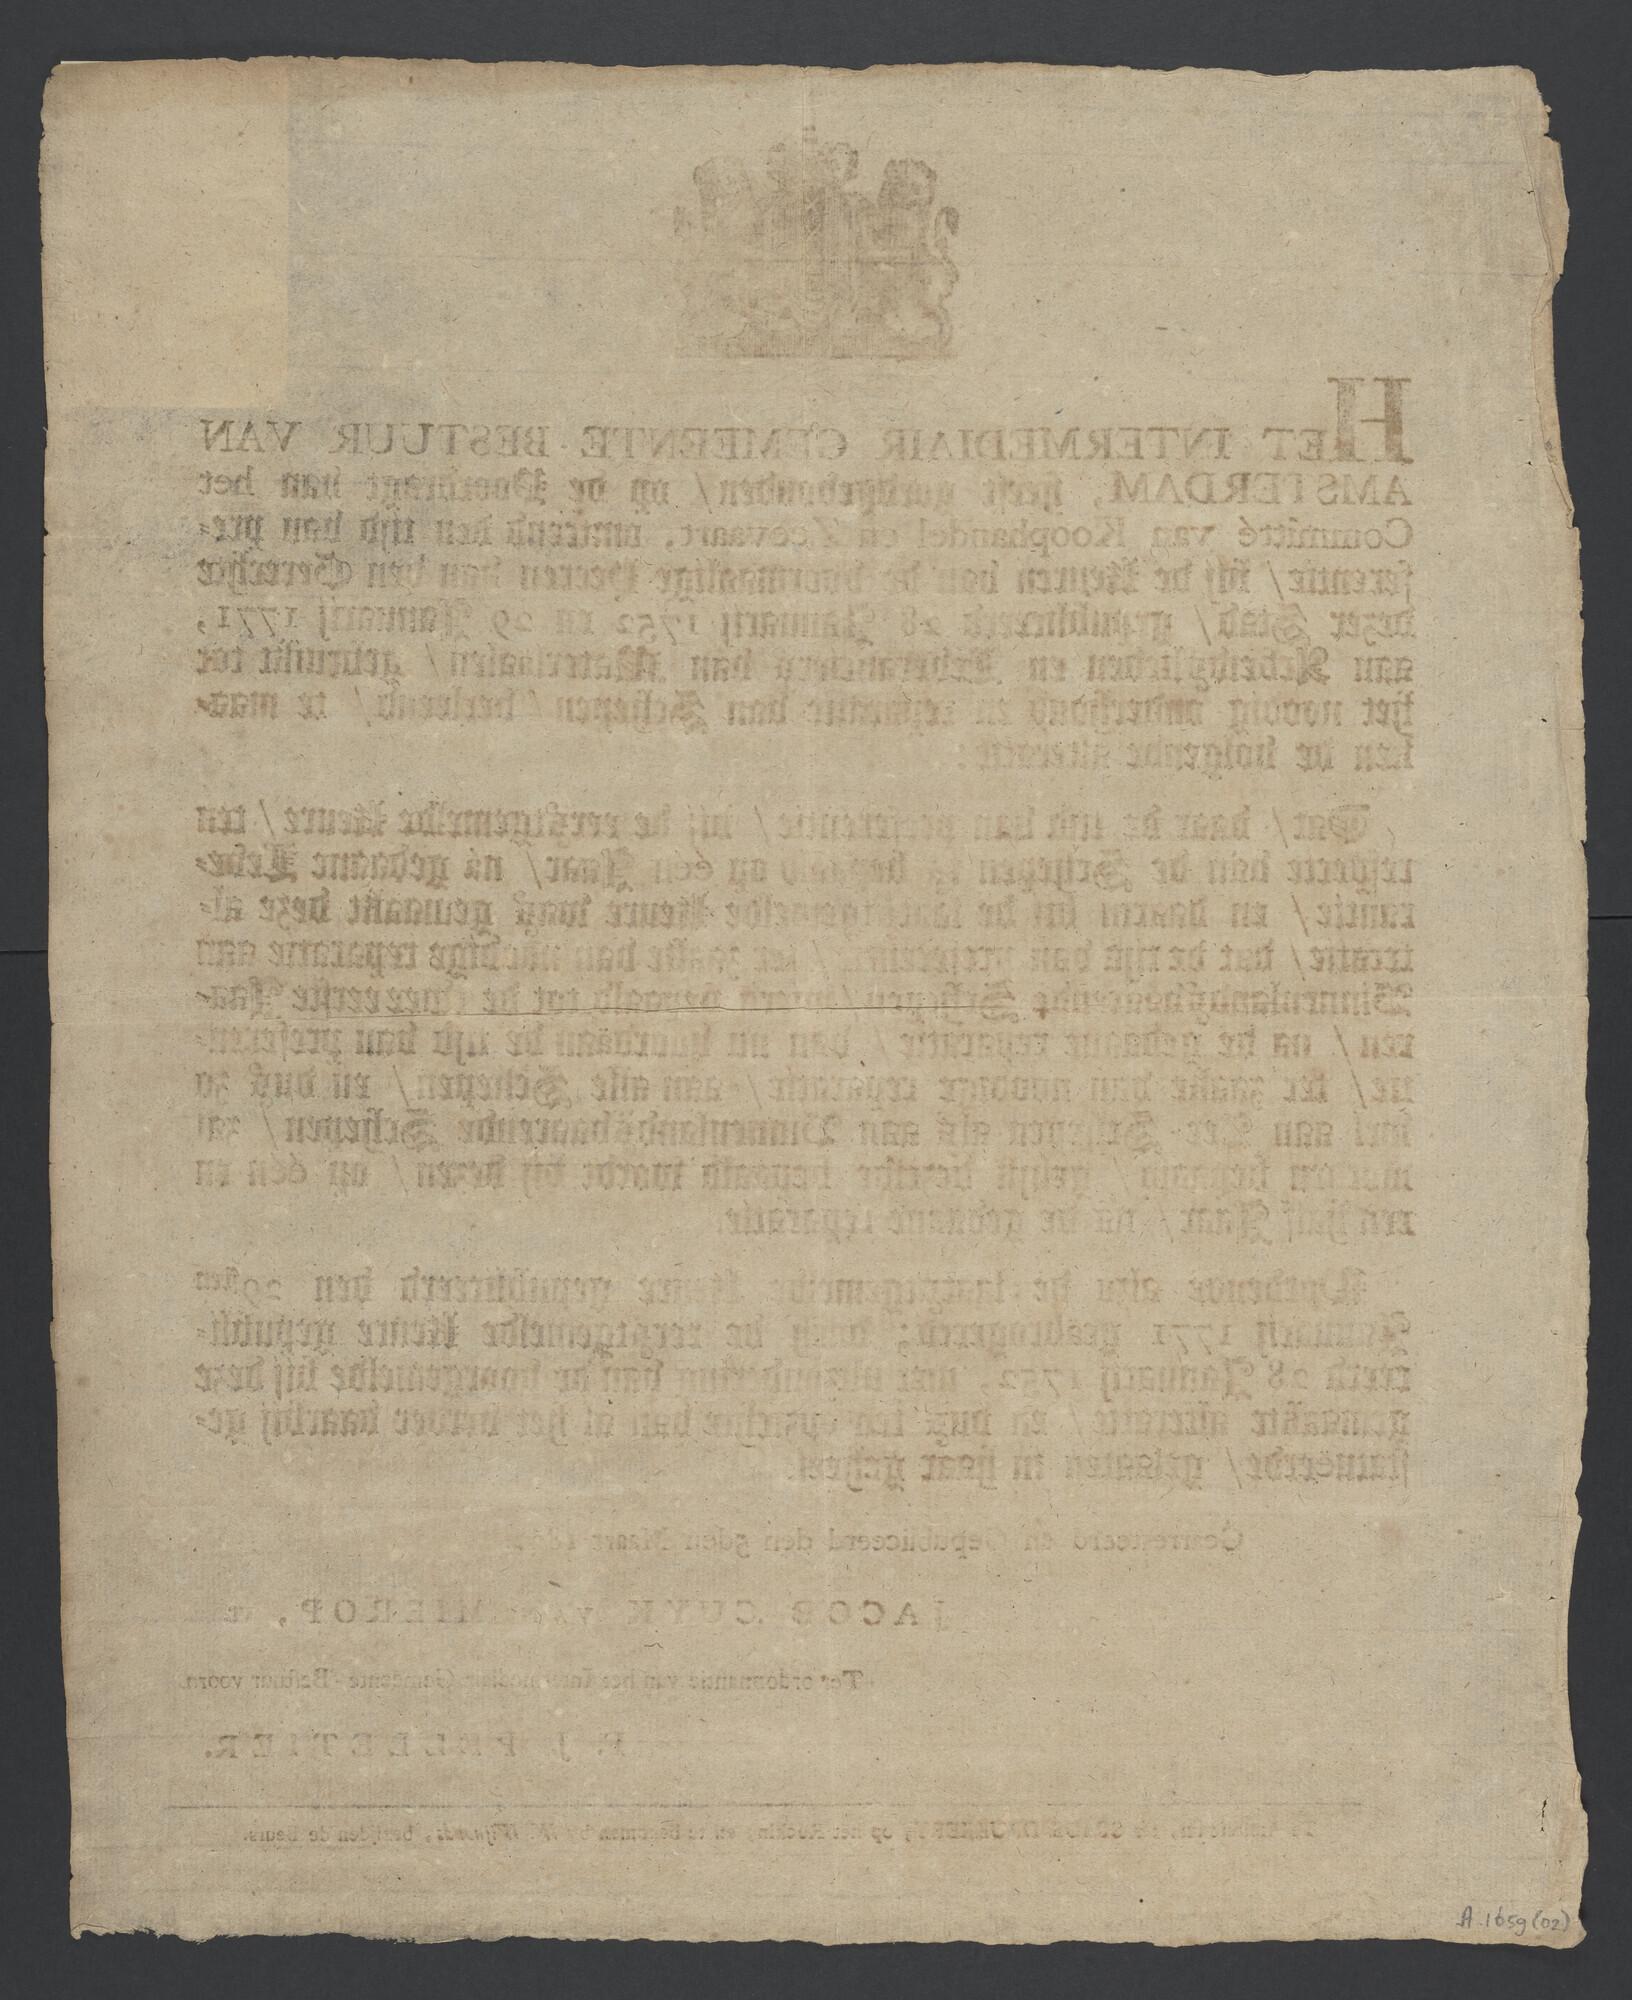 HET INTERMEDIAIR GEMEENTE-BESTUUR VAN
AMSTERDAM, heeft goedgevonden / op de Voordragt van het
Committé van Koophandel en Zeevaart, omtrend den tijd van pre-
ferentie / bij de Keuren van de voormaalige Heeren van den Gerechte
dezer Stad / gepubliceerd 28 Januarij 1752 en 29 Januarij 1771,
aan Arbeidslieden en Leveranciers van Materiaalen / gebruikt tot
het noodig onderhoud en reparatie van Schepen / verleend / te maa-
ken de volgende alteratie:
Dat / daar de tijd van preferentie / bij de eerstgemelde Keure / ten
respecte van de Schepen is bepaald op één Jaar / ná gedaane Leve-
rantie / en daarin bij de laatstgemelde Keure was gemaakt deze al-
teratie / dat de tijd van preferentie / ter zaake van noodige reparatie aan
Binnenlandsvaarende Schepen / wierd bepaald tot de twee eerste Jaa-
ren / na de gedaane reparatie / van nu voordaan de tijd van preferen-
tie / ter zaake van noodige reparatie / aan alle Schepen / en dus zo
wel aan Zee-Schepen als aan Binnenlandsvaarende Schepen / zal
moeten bepaald / gelijk dezelve bepaald wordt bij dezen / op één en
een half Jaar / na de gedaane reparatie.
Wordende alzo de laatstgemelde Keure gepubliceerd den 29sten
Januarij 1771 geabrogeerd; doch de eerstgemelde Keure gepubli-
ceerd 28 Januarij 1752, met uitzondering van de voorgemelde bij deze
gemaakte alteratie / en dus ten opzichte van al het verder daarbij ge-
statueerde / gelaaten in haar geheel.
Gearresteerd en Gepubliceerd den 5den Maart
JACOB CUYK van MIEROP, vt.
Ter ordonnantie van het Intermediair Gemeente-Bestuur voorn.
F. J. PELLETIER.
Te Amsterdam, ter STADS DRUKKERIJ, op het Rockin, en te bekomen by W. Wijnands, bezijden de Beurs.
A.1659(02)